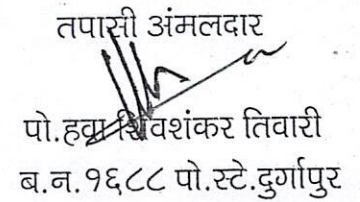 तपासी अंमलदार
पो.हवा शिवशंकर तिवारी
ब.न.१६८८ पो.स्टे.दुर्गापुर